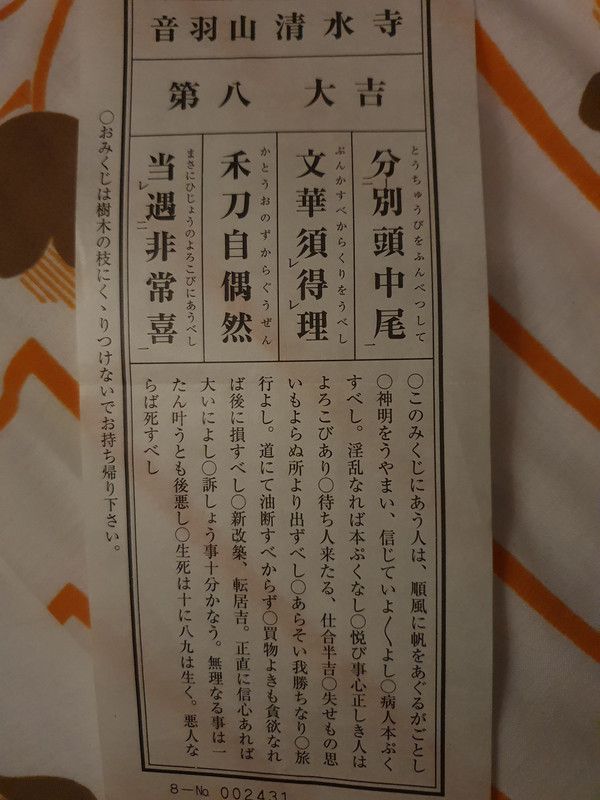 音羽山清水寺
第八　大吉
とうちゅうびをふんべつして
分別頭中尾
ぶんかすべからくりをうべし
文華須得理
かとうおのずからぐうぜん
禾刀自偶然
まさにひじょうのよろこびにあうべし
当遇非常喜
〇このみくじにあう人は、順風に帆をあぐるがごとし
〇神明をうやまい、信じていよ〳〵よし〇病人本ぷく
すべし。淫乱なれば本ぷくなし〇悦び事心正しき人は
よろこびあり〇待ち人来たる、仕合半吉〇失せもの思
いもよらぬ所より出ずべし〇あらそい我勝ちなり〇旅
行よし。道にて油断すべからず〇買物よきも貪欲なれ
ば後に損すべし〇新改築、転居吉。正直に信心あれば
大いによし〇訴しょう事十分かなう。無理なる事は一
たん叶うとも後悪し〇生死は十に八九は生く。悪人な
らば死すべし
〇おみくじは樹木の枝にくゝりつけないでお持ち帰り下さい。
8－№ 002431